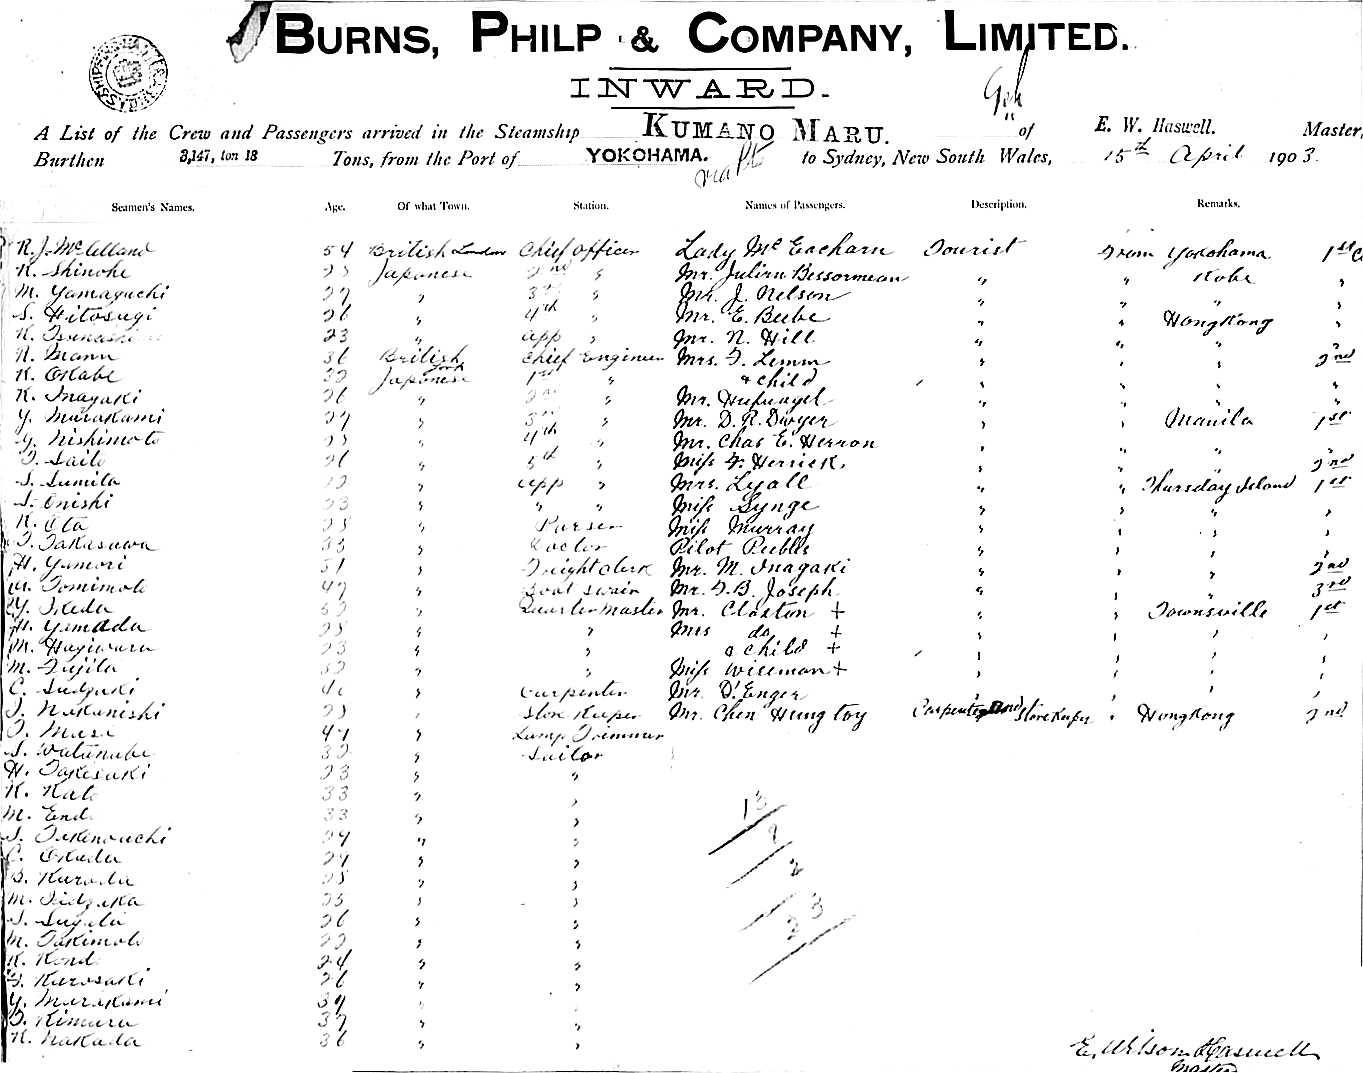 BURNS, PHILP & COMPANY, LIMITED.
INWARD.
A List of the Crew and Passengers arrived in the Steamship KUMANO MARU. of E. W. Haswell. Master,
Burthen 3,147, ton 18 Tons, from the Port of YOKOHAMA. to Sydney, New South Wales, 15th April 1903.
Seamen's Names. Age. Of what Town. Station. Names of Passengers. Description. Remarks.
R. J. McLelland 54 British London Chief Officer Lady Mc Eacharn Tourist From Yokohama 1st
K. Shinohe Japanese 2nd " Mr. Julien Bessormean " " Kobe "
M. Yamaguchi 27 " 3rd " Mr. J. Nelson " " " "
S. Hitosugi 26 " 4th " Mr. E. Beebe " " HongKong "
K. 23 " app " Mr. N. Hill " " " "
R. Mann 36 British Chief Engineer Mrs. F. Lemm " " " 2nd
K. Okabe 32 Japanese 1st " & child " " " "
K. Inagaki 26 " 2nd " Mr. Hufnagel " " " "
Y. Murakami 27 " 3rd " Mr. D. R. Dwyer " " Manila 1st
Y. Nishimoto " 4th " Mr. Chas E. Herron " " "
T. Saito 26 " 5th " Miss F. Herrick. " " " 2nd
S. Sumita 22 " app " Mrs. Lyall " " Thursday Island 1st
S. Onishi 23 " " " Miss Synge " " " "
K. Ota " Purser Miss Murray " " " "
T. Takasuwa 33 " Doctor Pilot Peebles " " " "
H. Yamori 51 " Freight clerk Mr. M. Inagaki " " " 2nd
M. Tomimoto 47 " Boat swain Mr. F. B. Joseph " " " 3rd
Y. Ikeda 32 " Quarter master Mr. Claxton + " " Townsville 1st
H. Yamada 28 " " Mrs do + " " " "
M. Hagiwara 23 " " & child + " " " "
M. Fujita 32 " " Miss Wiseman + " " " "
C. Sudzuki " Carpenter Mr. D'Enger " " " "
J. Nakanishi " Store Keeper Mr. Chen Hung toy Carpenter and Store Keeper " HongKong 2nd
T. Masa 47 " Lamp Trimmer
S. Watanabe 32 " Sailor
H. Takesaki 23 " "
K. Kato 33 " "
M. Endo 33 " "
S. Takenouchi 24 " "
C. Okada 24 " "
S. Kuroda 28 " "
M. 25 " "
S. Sugita 26 " "
M. Takimoto 22 " "
K. Kondo 24 " "
Kurosaki 26 " "
Y. Murakami 39 " "
T. Kimura 37 " "
K. Nakada 36 " "
13
2
3
E. Wilson Haswell
Master